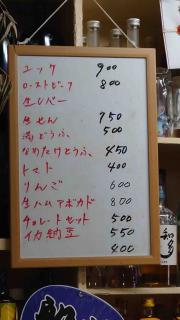 ユッケ 900
ローストビーフ 800
生レバー
生せん 750
湯どうふ 500
なめたけとうふ 450
トマト 400
りんご 600
生ハムアボカド 800
チョコレートセット 500
イカ納豆 550
400